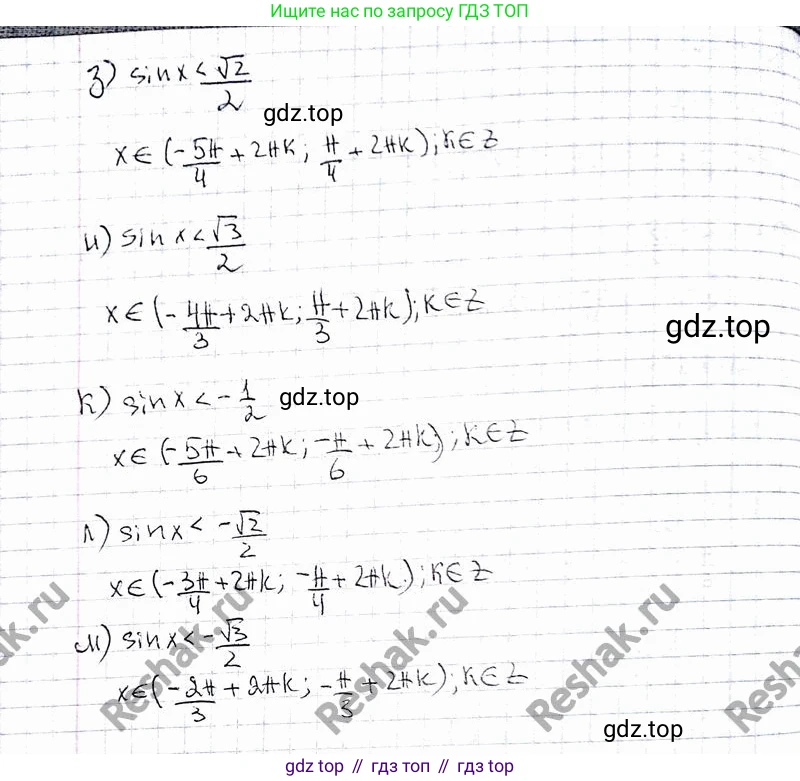 Ищите нас по запросу ГДЗ ТОП
з) sin x < √2/2
gdz.top
x ∈ (-5π/4 + 2πk; π/4 + 2πk); k ∈ Z
и) sin x < √3/2
x ∈ (-4π/3 + 2πk; π/3 + 2πk); k ∈ Z
gdz.top
к) sin x < -1/2
gdz.top
x ∈ (-5π/6 + 2πk; -π/6 + 2πk); k ∈ Z
л) sin x < -√2/2
x ∈ (-3π/4 + 2πk; -π/4 + 2πk); k ∈ Z
м) sin x < -√3/2
x ∈ (-2π/3 + 2πk; -π/3 + 2πk); k ∈ Z
Reshak.ru
Reshak.ru
Reshak.ru
Reshak.ru
Reshak.ru
gdz.top
gdz.top // гдз топ // gdz.top